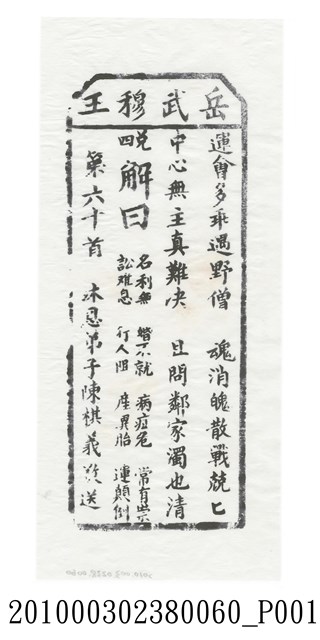 岳武穆王
運會多乖遇野僧 魂消魄散戰兢匕
中心無主真難决 且問鄰家濁也清
兌四 解曰
名利無 婚不就 病症危 常有祟
訟难息 行人阻 産異胎 連顛倒
第六十首 沐恩弟子陳棋義敬送
201000302380060_P001